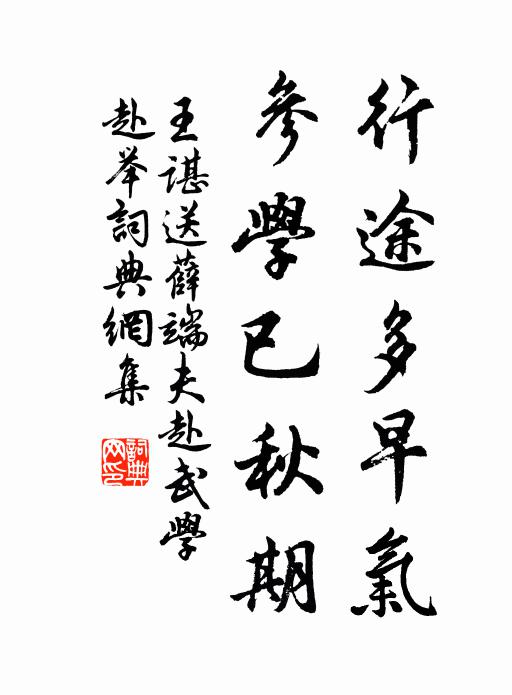 行途多早氣
參學已秋期
王諶送薛端夫赴武學
赴举詞典網集
詞典
网印